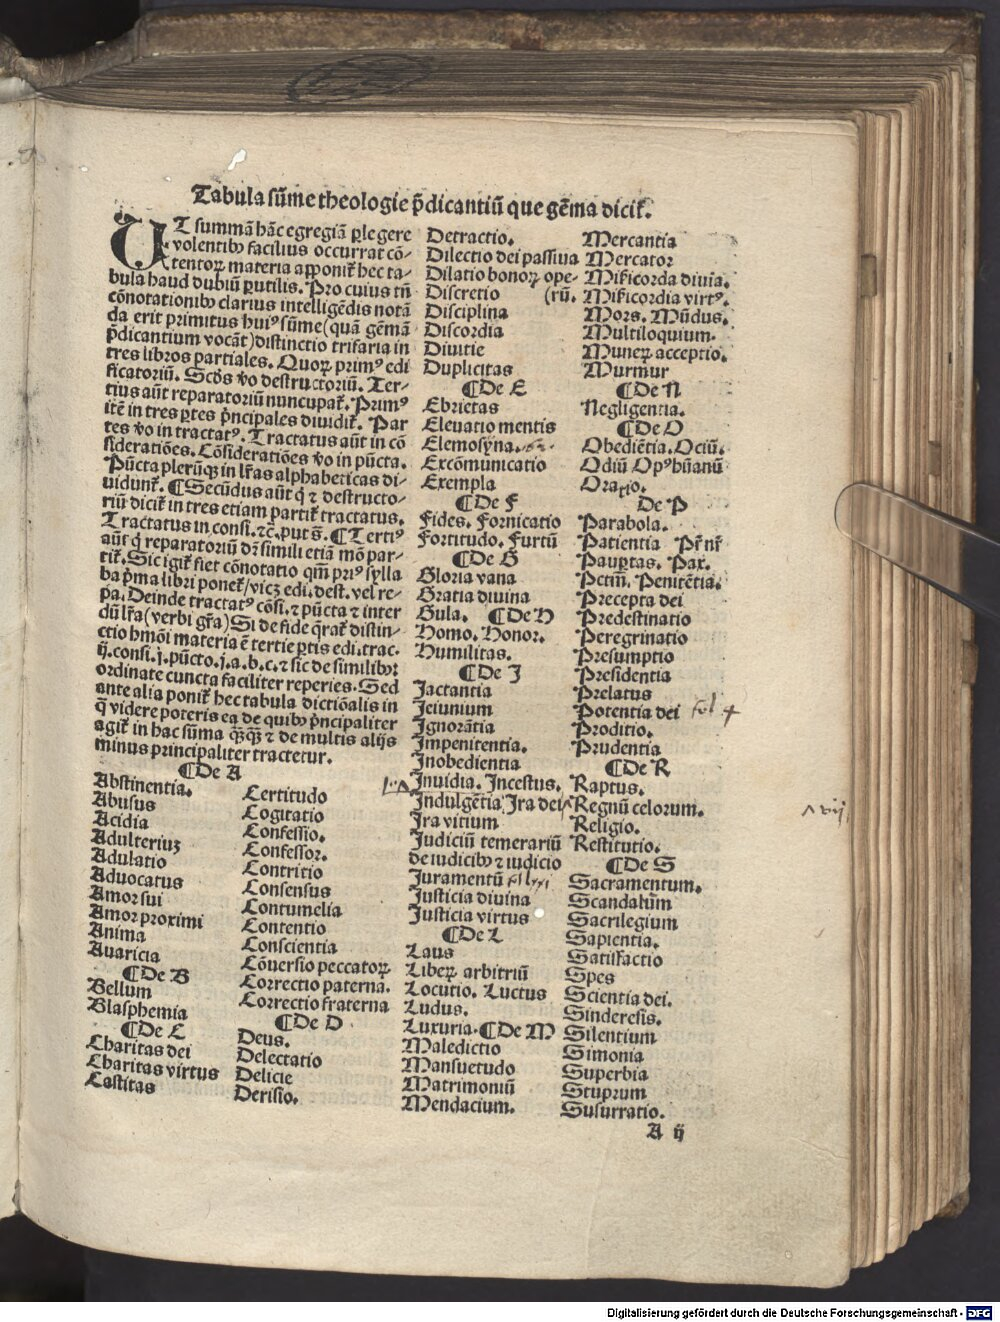 Tabula sūme theologie p̄dicantiū que gēma dicit̄.
UT summā hāc egregiā ꝑlegere
volentibꝰ facilius occurrat cō-
tentoꝝ materia apponit̄ hec ta-
bula haud dubiū ꝑutilis. Pro cuius tn̄
cōnotationibꝰ clarius intelligēdis notā
da erit primitus huiꝰ sūme (quā gēmā
p̄dicantium vocāt) distinctio trifaria in
tres libros partiales. Quoꝝ primꝰ edi
ficatoriū. Scd̄s v̄o destructoriū. Ter-
tius aūt reparatoriū nuncupat̄. Primꝰ
itē in tres ꝑtes p̄ncipales diuidit̄. Par
tes v̄o in tractatꝰ. Tractatus aūt in cō
sideratiōes. Cōsideratiōes v̄o in pūcta.
Pūcta plerūqꝫ in lr̄as alphabeticas di-
uidunt̄. ¶ Secūdus aūt q̄ ⁊ destructo-
riū dicit̄ in tres etiam partit̄ tractatus.
Tractatus in consi. ⁊c̄. put s̄. ¶ Tertiꝰ
aūt q̄ reparatoriū dr̄ simili etiā mō par-
tit̄. Sic igit̄ fiet cōnotatio qm̄ priꝰ sylla
ba p̄ma libri ponet̄/ vicꝫ edi. dest. vel re-
pa. Deinde tractatꝰ cōsi. ⁊ pūcta ⁊ inter
dū lr̄a (verbi gr̄a) Si de fide q̄rat̄ distin-
ctio hmōi materia ē tertie ꝑtis edi. trac.
ij. consi. j. pūcto. j. a. b. c. ⁊ sic de similibꝰ:
ordinate cuncta faciliter reperies. Sed
ante alia ponit̄ hec tabula dictiōalis in
q̄ videre poteris ea de quibꝰ p̄ncipaliter
agit̄ in hac sūma q̄ꝫq̄ꝫ ⁊ de multis alijs
minus principaliter tractetur.
¶ De A
Abstinentia.
Abusus
Acidia
Adulteriuꝫ
Adulatio
Aduocatus
Amor sui
Amor proximi
Anima
Auaricia
¶ De B
Bellum
Blasphemia
¶ De C
Charitas dei
Charitas virtus
Castitas
Certitudo
Cogitatio
Confessio.
Confessor.
Contritio
Consensus
Contumelia
Contentio
Conscientia
Cōuersio peccatoꝝ
Correctio paterna.
Correctio fraterna
¶ De D
Deus.
Delectatio
Delicie
Derisio.
Detractio.
Dilectio dei passiua
Dilatio bonoꝝ ope-
Discretio (rū.
Disciplina
Discordia
Diuitie
Duplicitas
¶ De E
Ebrietas
Eleuatio mentis
Elemosyna.
Excōmunicatio
Exempla
¶ De F
Fides. Fornicatio
Fortitudo. Furtū
¶ De G
Gloria vana
Gratia diuina
Gula. ¶ De H
Homo. Honor.
Humilitas.
¶ De J
Jactantia
Jeiunium
Jgnorātia
Jmpenitentia.
Jnobedientia
Jnuidia. Jncestus.
Jndulgētia. Jra dei
Jra vitium
Judiciū temerariū
de iudicibꝰ ⁊ iudicio
Juramentū fol xxi
Justicia diuina
Justicia virtus
¶ De L
Laus
Libeꝝ arbitriū
Locutio. Luctus
Ludus.
Luxuria. ¶ De M
Maledictio
Mansuetudo
Matrimoniū
Mendacium.
Mercantia
Mercator
Mis̄icorda diuia.
Mis̄icordia virtꝰ.
Mors. Mūdus.
Multiloquium.
Muneꝝ acceptio.
Murmur
¶ De N
Negligentia.
¶ De O
Obediētia. Ociū.
Odiū Opꝰ hūanū
Oratio.
De P
Parabola.
Patientia Pr̄ nr̄
Pauꝑtas. Pax.
Pctm̄. Penitētia.
Precepta dei
Predestinatio
Peregrinatio
Presumptio
Presidentia
Prelatus
Potentia dei fol +
Proditio.
Prudentia
¶ De R
Raptus.
Regnū celorum.
Religio.
Restitutio.
¶ De S
Sacramentum.
Scandalūm
Sacrilegium
Sapientia.
Satisfactio
Spes
Scientia dei.
Sinderesis.
Silentium
Simonia
Superbia
Stuprum
Susurratio.
A ij
Digitalisierung gefördert durch die Deutsche Forschungsgemeinschaft - DFG